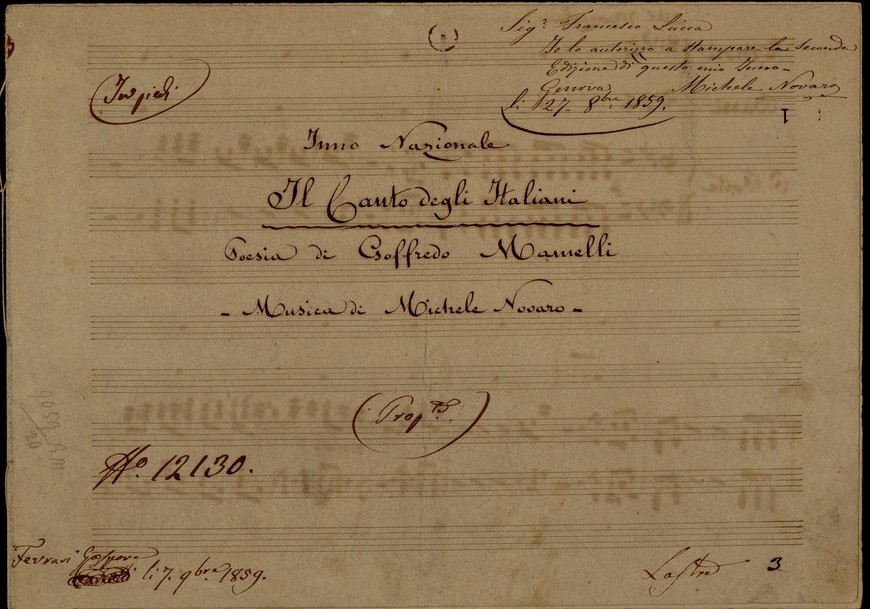 Sig.r Francesco Lucca
Io lo autorizzo a stampare la seconda
Edizione di questo mio Inno -
Genova Michele Novaro
li 27. 8bre 1859.
In piedi
Inno Nazionale
Il Canto degli Italiani
Poesia di Goffredo Mamelli
- Musica di Michele Novaro -
(Prop.tà.)
No. 12130.
Ferrari Gaspare
li 7. 9bre 1859.
Lastre 3